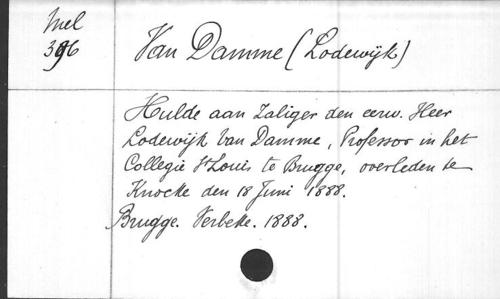 Mel
396
Van Damme (Lodewijk)
Hulde aan Zaliger den eerw. Heer
Lodewijk Van Damme, Professor in het
Collegie St Louis te Brugge, overleden te
Knocke den 18 Juni 1888.
Brugge. Verbeke. 1888.